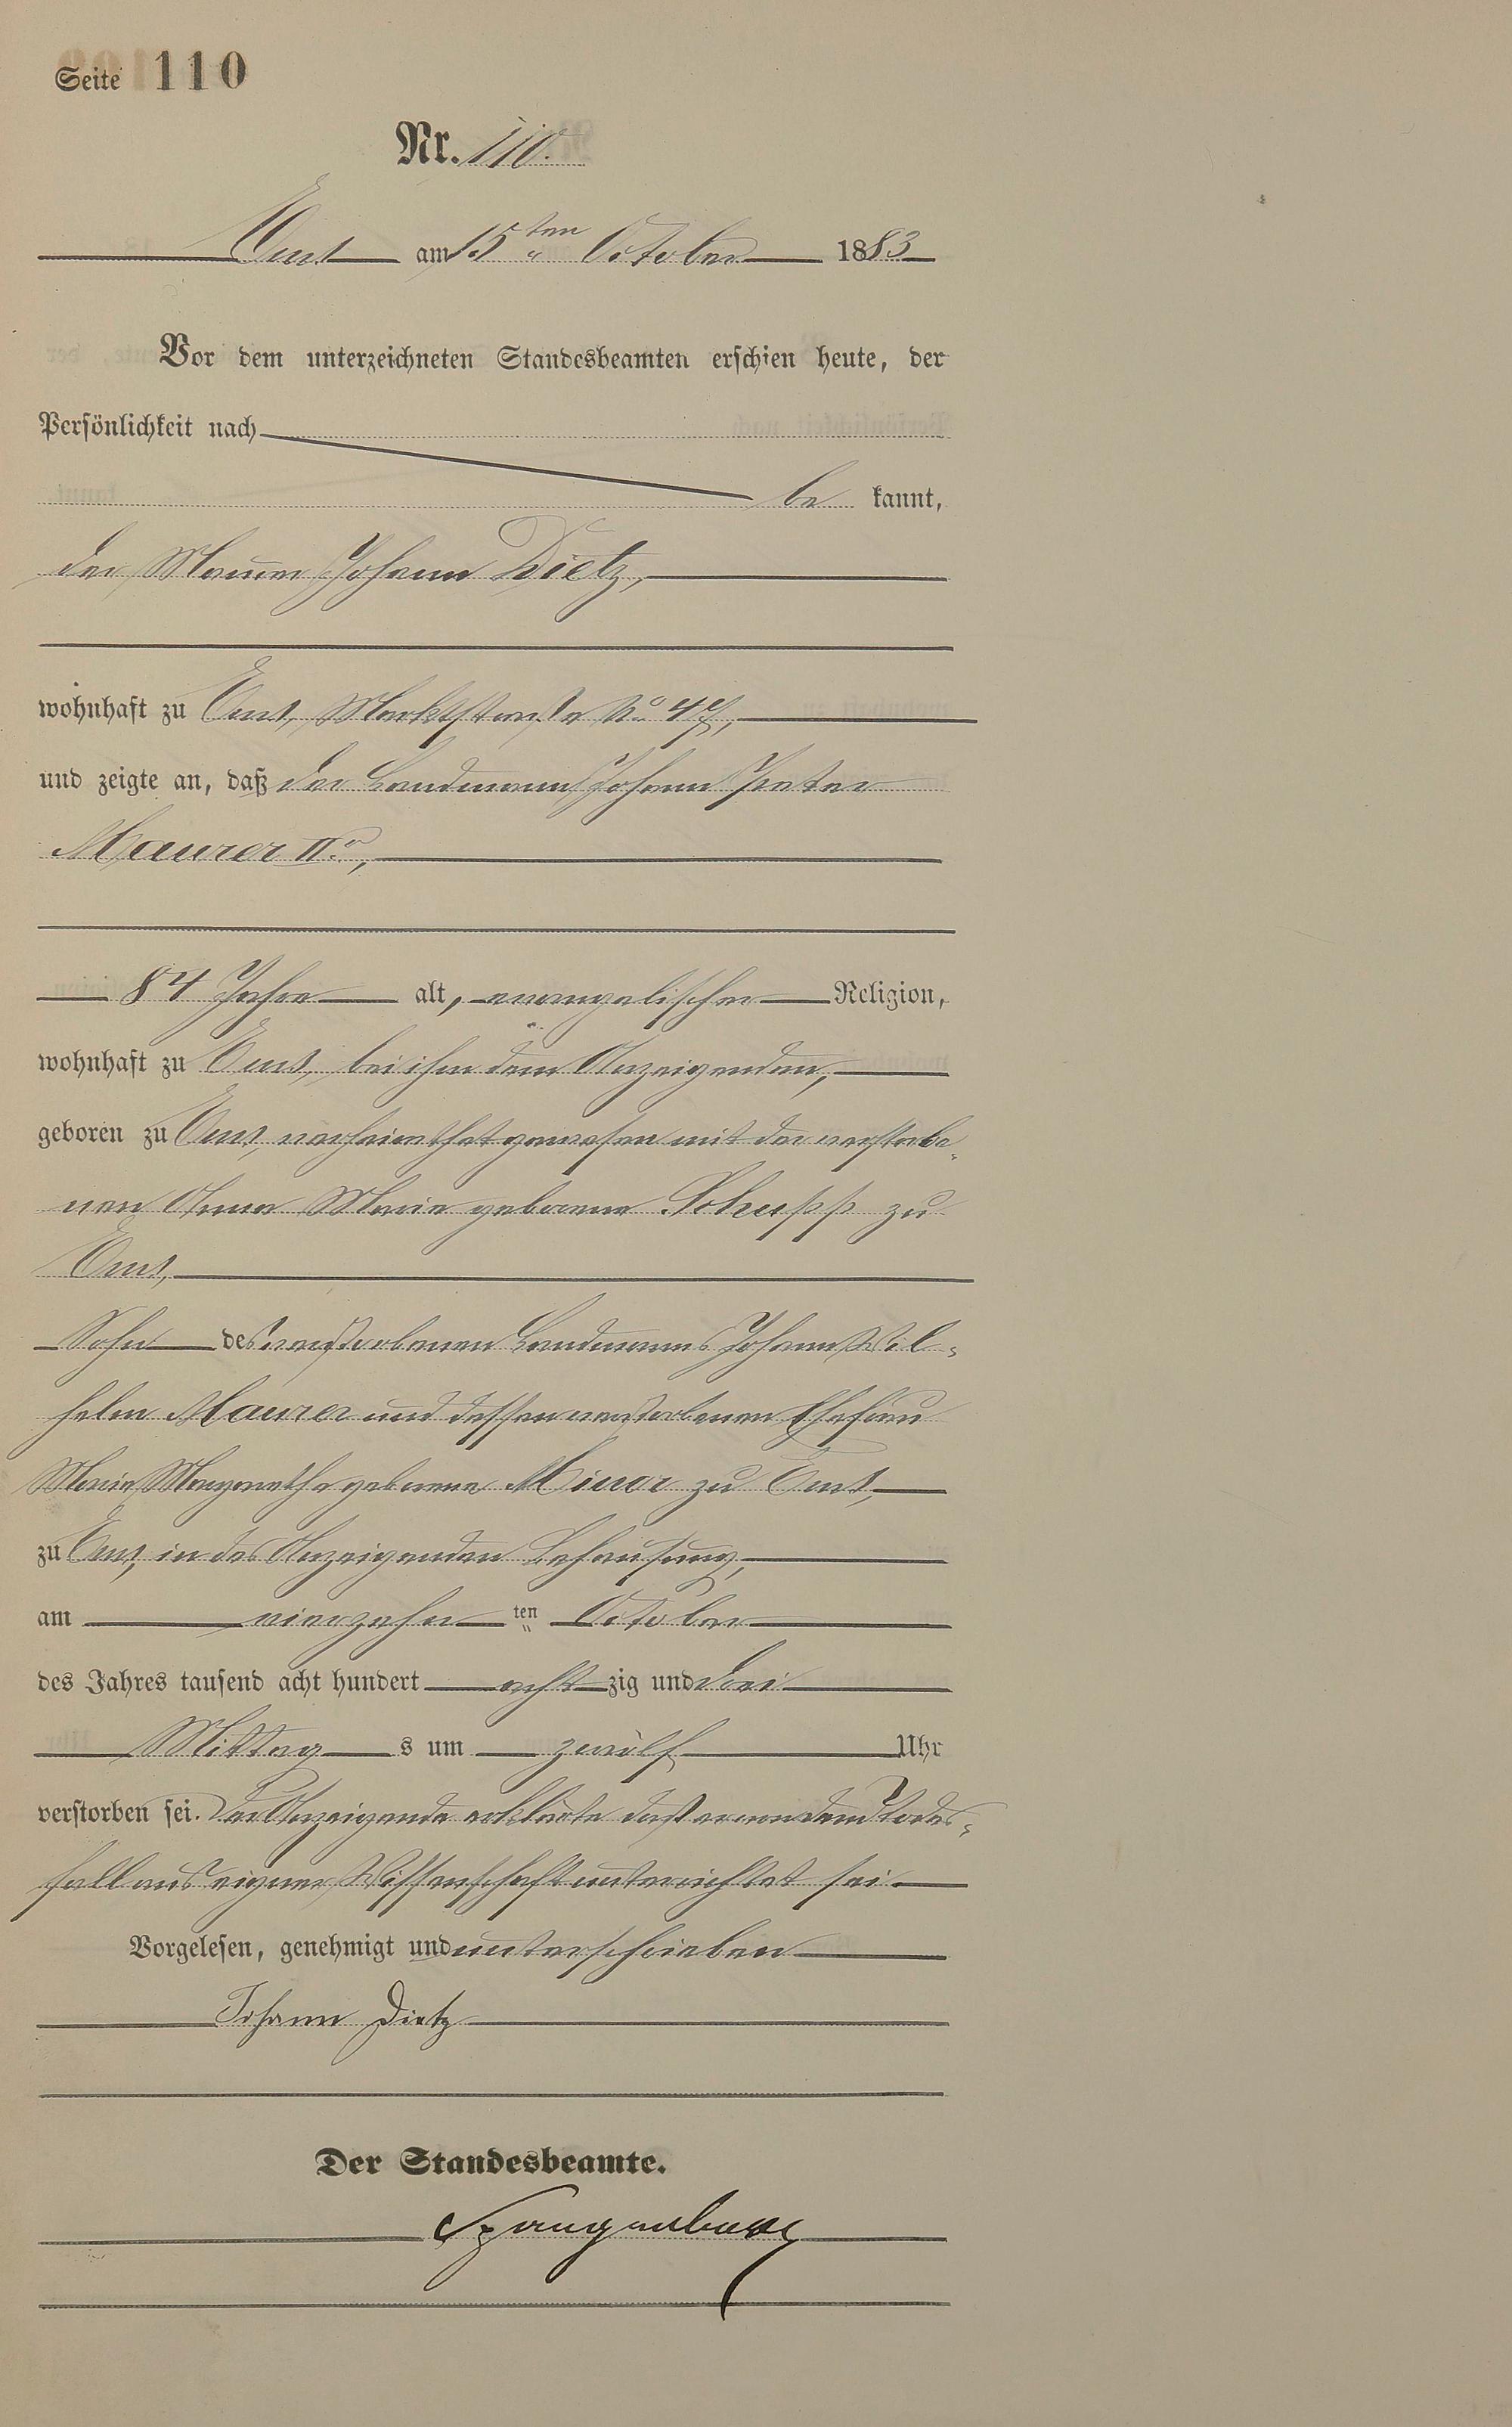 Seite 110
Nr. 110.
Ems am 15ten October 1883
Vor dem unterzeichneten Standesbeamten erschien heute, der
Persönlichkeit nach
be kannt,
der Maurer Johann Dietz,
wohnhaft zu Ems, Marktstraße No 47,
und zeigte an, daß der Landmann Johann Peter
Maurer IIr,
84 Jahre alt, evangelischer Religion,
wohnhaft zu Ems, bei ihm dem Anzeigenden,
geboren zu Ems, verheirathet gewesen mit der verstorbe-
nen Anna Maria geborene Schupp zu
Ems,
Sohn des verstorbenen Landmanns Johann Wil-
helm Maurer und dessen verstorbenen Ehefrau
Maria Margaretha geborene Minor zu Ems,
zu Ems, in des Anzeigenden Behausung,
am vierzehn ten October
des Jahres tausend acht hundert acht zig und drei
Mittag s um zwölf Uhr
verstorben sei. Der Anzeigende erklärte daß er von dem Todes-
fall aus eigner Wissenschaft unterrichtet sei.
Vorgelesen, genehmigt und unterschrieben
Johann Dietz
Der Standesbeamte.
Spangenberg